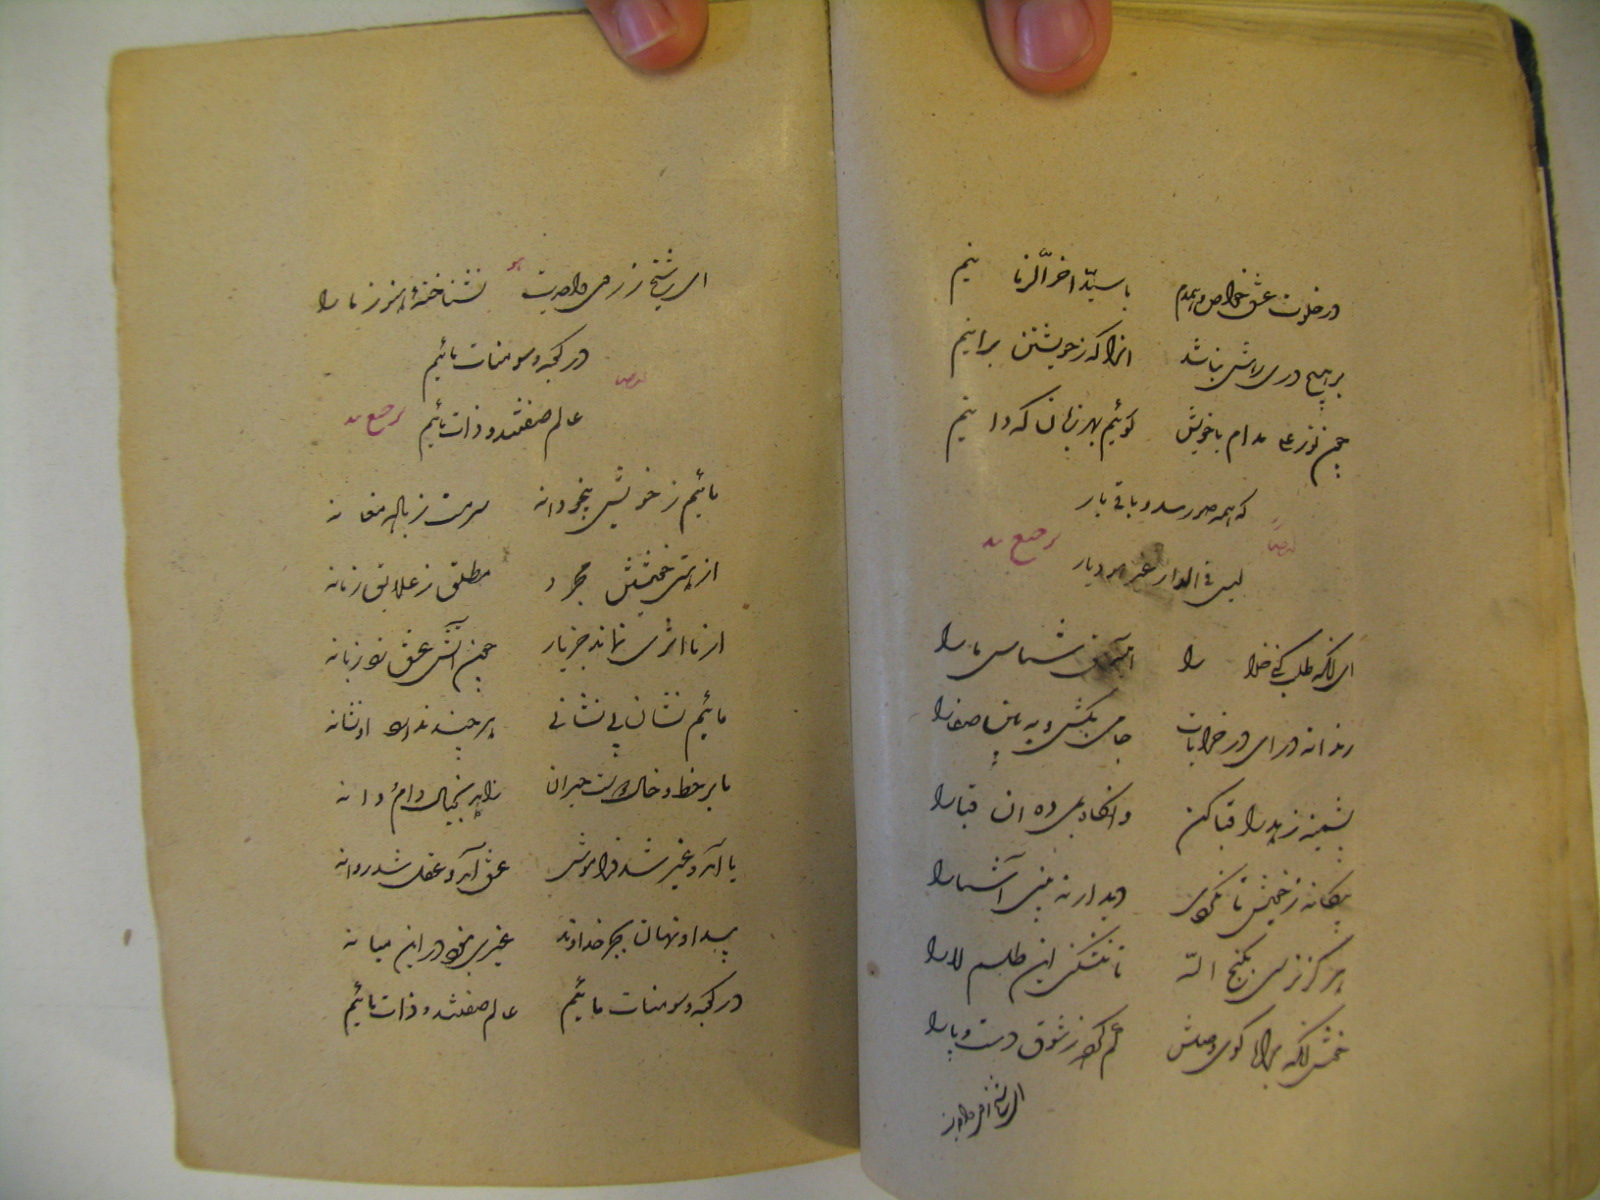 در خلوت عشق خواص و همدم با سید آخر الزمانیم
بر هیچ دری رهش نباشد آنرا که ز خویشتن برانیم
مدام با خویش گوئیم بهر زبان که دانیم
که همه صورتند و باقی یار
لیس فی الدار غیره دیار
ای آنکه طلب کنی خدا را شناس ما را
رندانه درای در خرابات جامی بکش و ببین صفا را
پشمینه زهد را قبا کن وانگاه بمی ده آن قبا را
بیگانه ز خویش تا نگردی دیدار نه بینی آشنا را
هرگز نرسی بگنج الا تا نشکنی این طلسم لا را
خوش آنکه براه کوی وصلش گم کرد ز شوق دست و پا را
ای شیخ ز
ای شیخ ز نشناخته هنوز ما را
در کعبه و سومنات مائیم
عالم صفتند و ذات مائیم
مائیم ز خویش بیخودانه سرمست ز باده مغانه
از هستی خویشتن مجرد مطلق ز علایق زمانه
از ما اثری نماند جز یار چون آتش عشق زد زبانه
مائیم نشان بی نشانی هر چند ندارد او نشانه
ما بر خط و خال اوست حیران زاهد بخیال دام و دانه
یار آمد و غیر شد فراموش عشق آمد و عقل شد روانه
پیدا و نهان بجز خداوند غیری نبود در این میانه
در کعبه و سومنات مائیم عالم صفتند و ذات مائیم